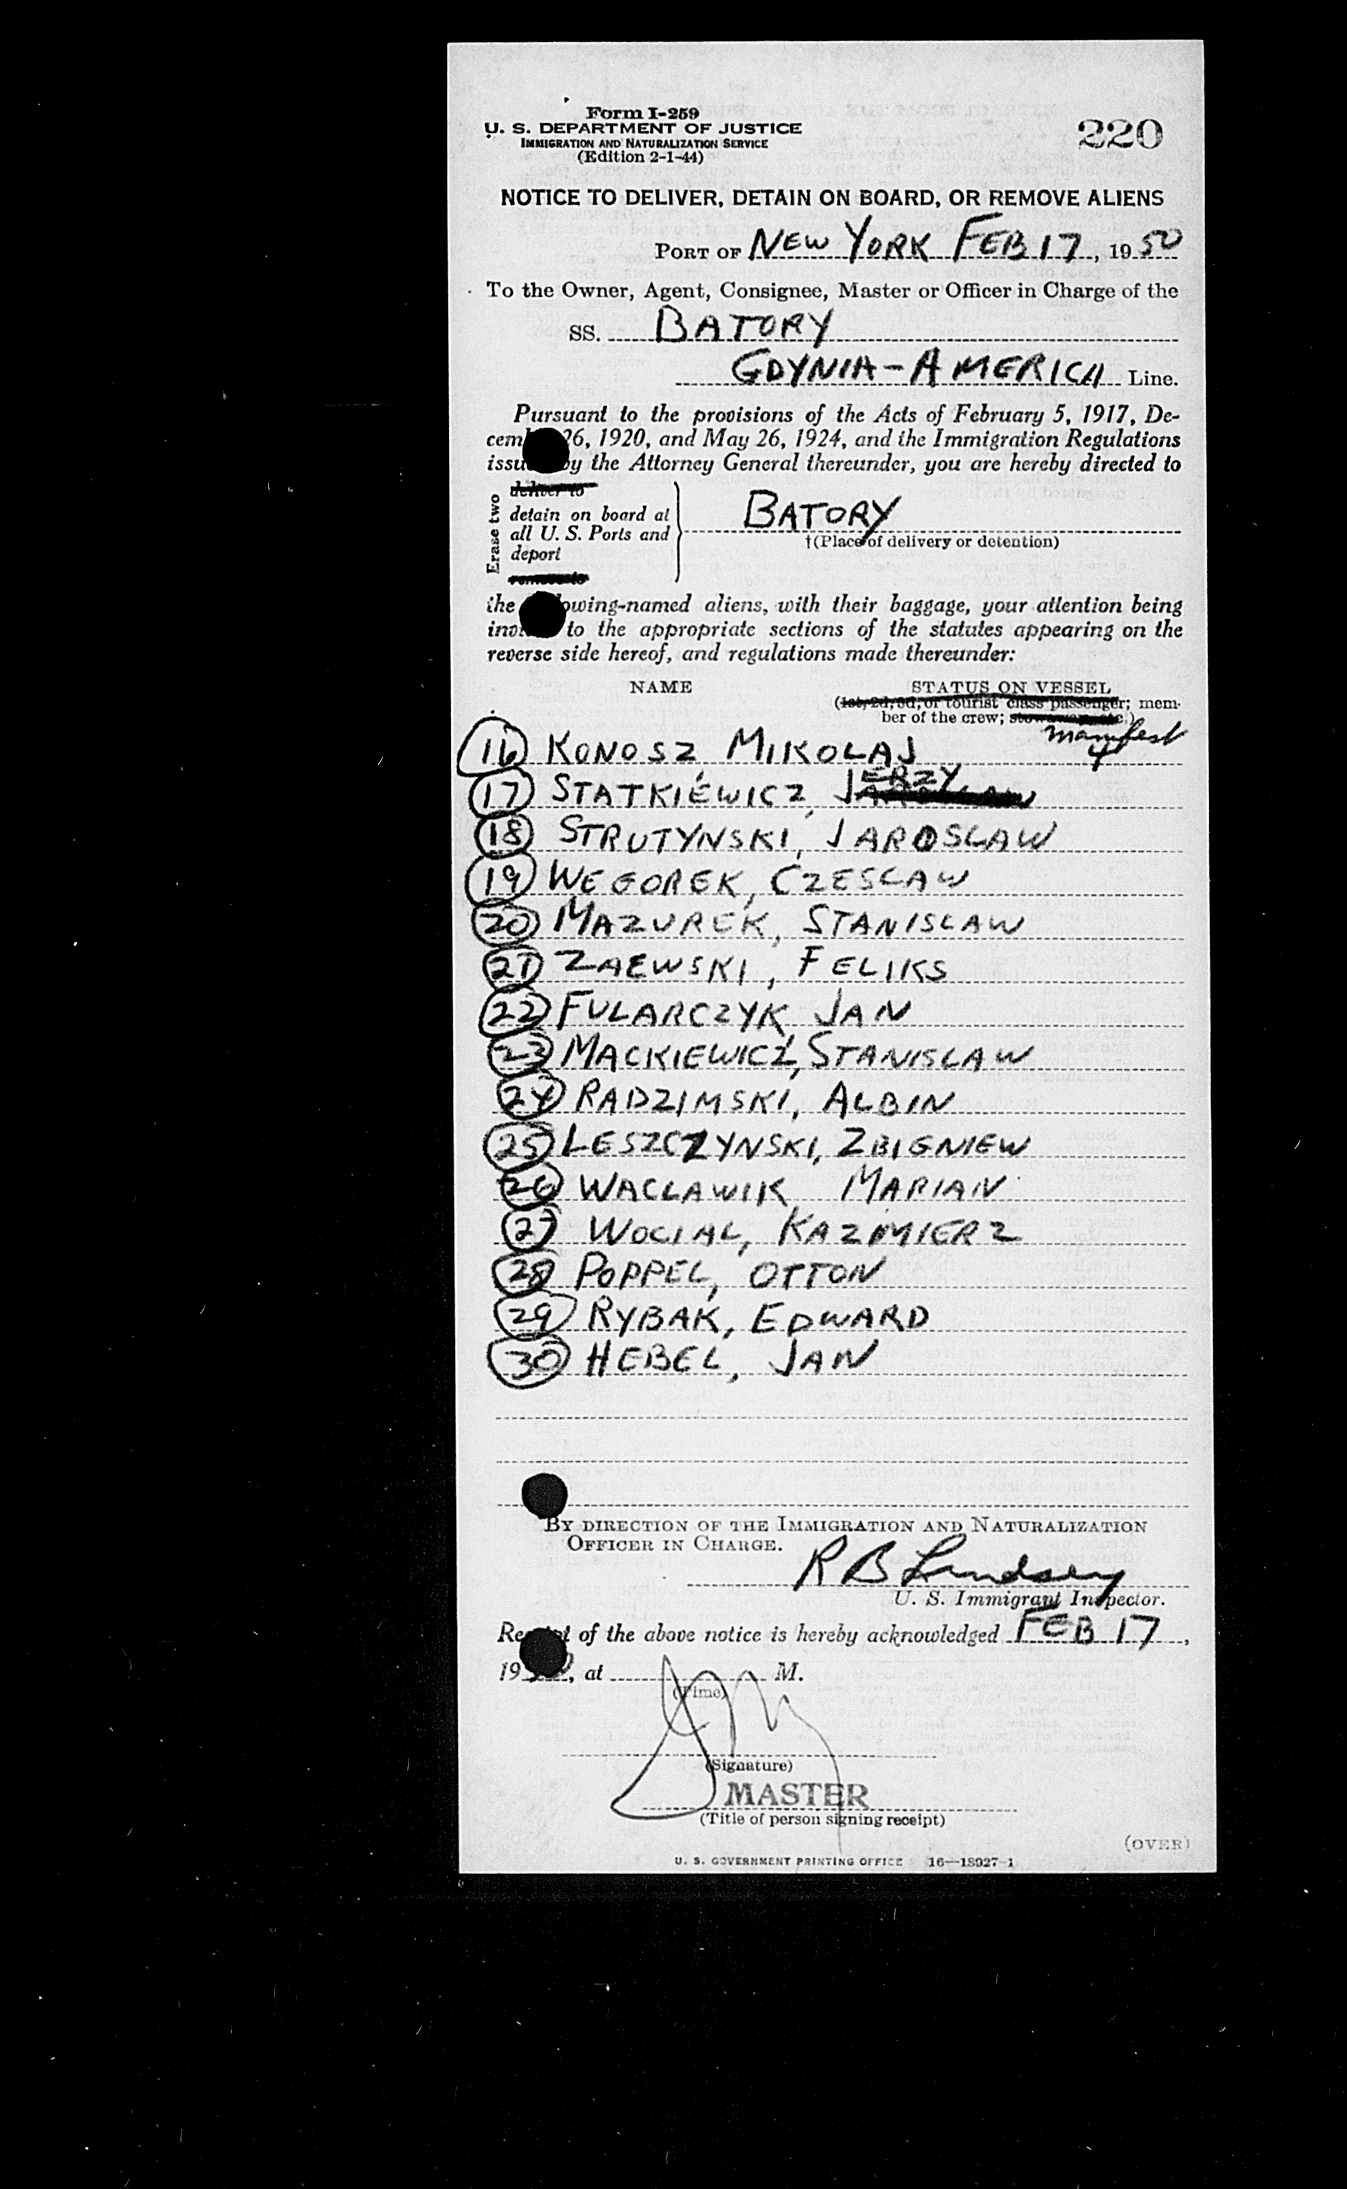 Form I-259
U. S. DEPARTMENT OF JUSTICE
IMMIGRATION AND NATURALIZATION SERVICE
(Edition 2-1-44)
220
NOTICE TO DELIVER, DETAIN ON BOARD, OR REMOVE ALIENS
PORT OF NEW YORK FEB 17, 1950
To the Owner, Agent, Consignee, Master or Officer in Charge of the
SS. BATORY
GDYNIA-AMERICA Line.
Pursuant to the provisions of the Acts of February 5, 1917, De-
cem 26, 1920, and May 26, 1924, and the Immigration Regulations
issu by the Attorney General thereunder, you are hereby directed to
Erase two
deliver to
detain on board at
all U. S. Ports and
deport
remove to
BATORY
†(Place of delivery or detention)
the owing-named aliens, with their baggage, your attention being
inv to the appropriate sections of the statutes appearing on the
reverse side hereof, and regulations made thereunder:
NAME
STATUS ON VESSEL
(1st, 2d, 3d, or tourist class passenger; mem-
ber of the crew;
manifest
4
16 KONOSZ MIKOLAJ
17 STATKIEWICZ, JERZY
18 STRUTYNSKI, JAROSLAW
19 WEGOREK, CZESLAW
20 MAZUREK, STANISLAW
21 ZAEWSKI, FELIKS
22 FULARCZYK, JAN
23 MACKIEWICZ, STANISLAW
24 RADZIMSKI, ALBIN
25 LESZCZYNSKI, ZBIGNIEW
26 WACLAWIK MARIAN
27 WOCIAL, KAZIMIERZ
28 POPPEL, OTTON
29 RYBAK, EDWARD
30 HEBEL, JAN
BY DIRECTION OF THE IMMIGRATION AND NATURALIZATION
OFFICER IN CHARGE.
R B Lindsey
U. S. Immigrant Inspector.
Receipt of the above notice is hereby acknowledged FEB 17,
19 , at M.
(Time)
(Signature)
MASTER
(Title of person signing receipt)
(OVER)
U. S. GOVERNMENT PRINTING OFFICE 16—18027-1